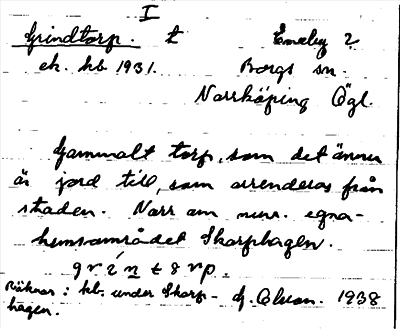 I
Grindtorp. t Eneby ?
ek. kb 1931. Borgs sn.
Norrköping Ögl.
Gammalt torp, som det ännu
är jord till, som arrenderas från
staden. Norr om nuv. egna-
hemsområdet Skarphagen.
g r i n t ɛ r p.
Räknas : kb. under Skarp- G. Olson. 1938
hagen.